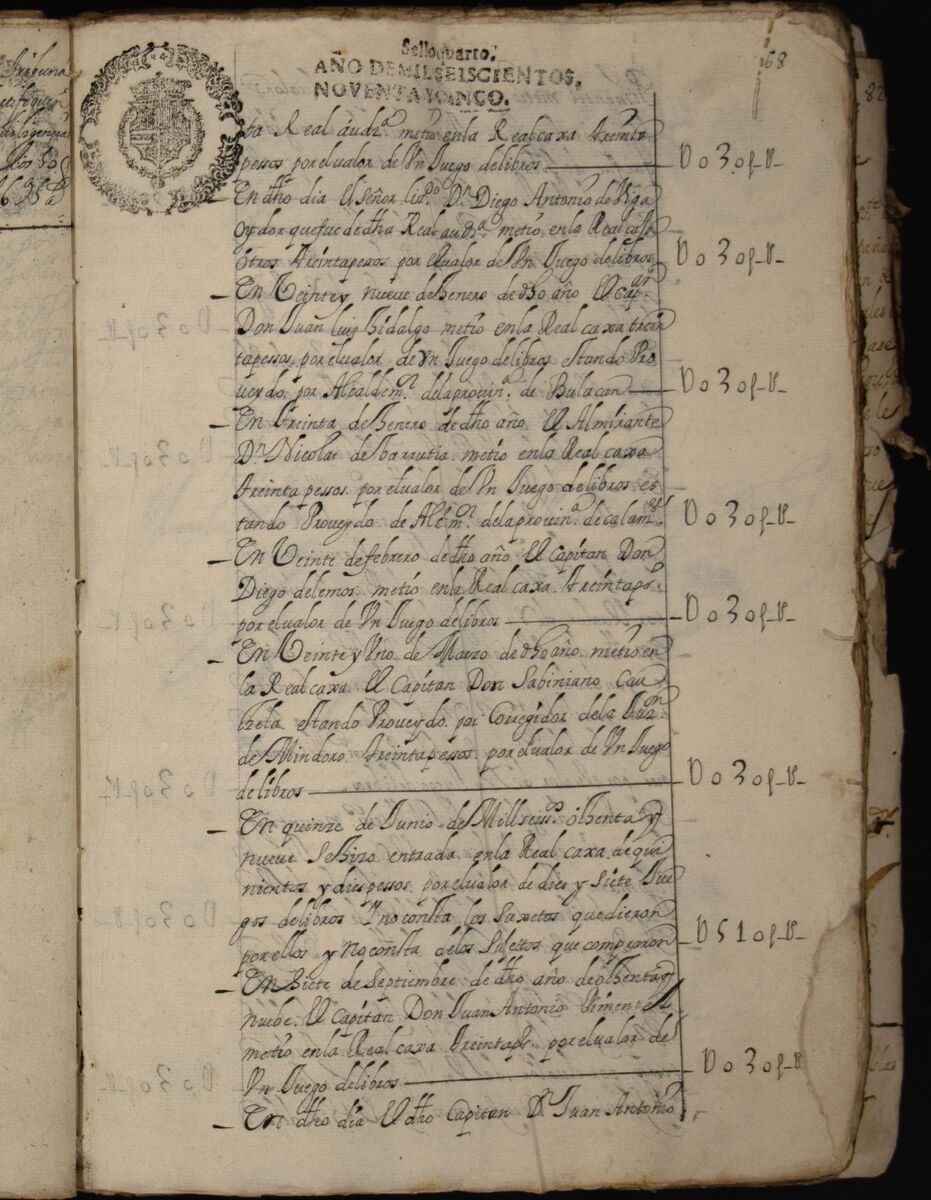 Selloquarto.
AÑO DE MIL SEISCIENTOS,
NOVENTA Y CINCO.
68
82
ta Real áudiª. metío en la Real caxa treinta
pessos por el valor de Vn Juego de libros — U030p-U-
En dho día el Señor Liz.do Dn Diego Antonio de Viga
oydor que fue de dha Real audiª. metío en la Real caxa
otros treinta pesos por el valor de Vn Juego de libros — U030p-U-
En Veinte y nueve de henero de dho año el Cap.an
Don Juan luis hidalgo metío en la Real caxa trein
ta pessos por el valor de Vn Juego de libros estando Pro
ueydo por Alcalde m.or de la prouin.ª de Bulacan — U030p-U-
En treinta de henero de dho año el Almirante
Dn Nicolas de Ibarrutia metío en la Real caxa
treinta pessos por el valor de Vn Juego de libros es
tando Proueydo de Alc.e m.or de la prouin.ª de calam.es U030p-U-
En Veinte de febrero de dho año el Capítan Don
Diego de lemos metío en la Real caxa treinta ps.
por el valor de Vn Juego de libros — U030p-U-
En Veinte y Vno de Marzo de dho año metío en
la Real caxa el Capítan Don Sabiniano
estando Proueydo por Corregidor de la Jur.on
de Mindoro treinta pessos por el valor de Vn Juego
de libros — U030p-U-
En quinze de Junio de Mill seiss.os óchenta y
nueve Se hizo entrada en la Real caxa de qui
nientos y dies pessos por el valor de dies y siete Jue
gos de libros Y no consta los Suxetos que dieron
por ellos y no consta de los Sujettos que compraron U510p-U-
En Siete de Septiembre de dho año de ochenta y
nuebe el Capítan Don Juan Antonio Pimentel
metío en la Real caxa treinta ps. por el valor de
Vn Juego de libros — U030p-U
En dho día el dho Capítan Dn Juan Antonío